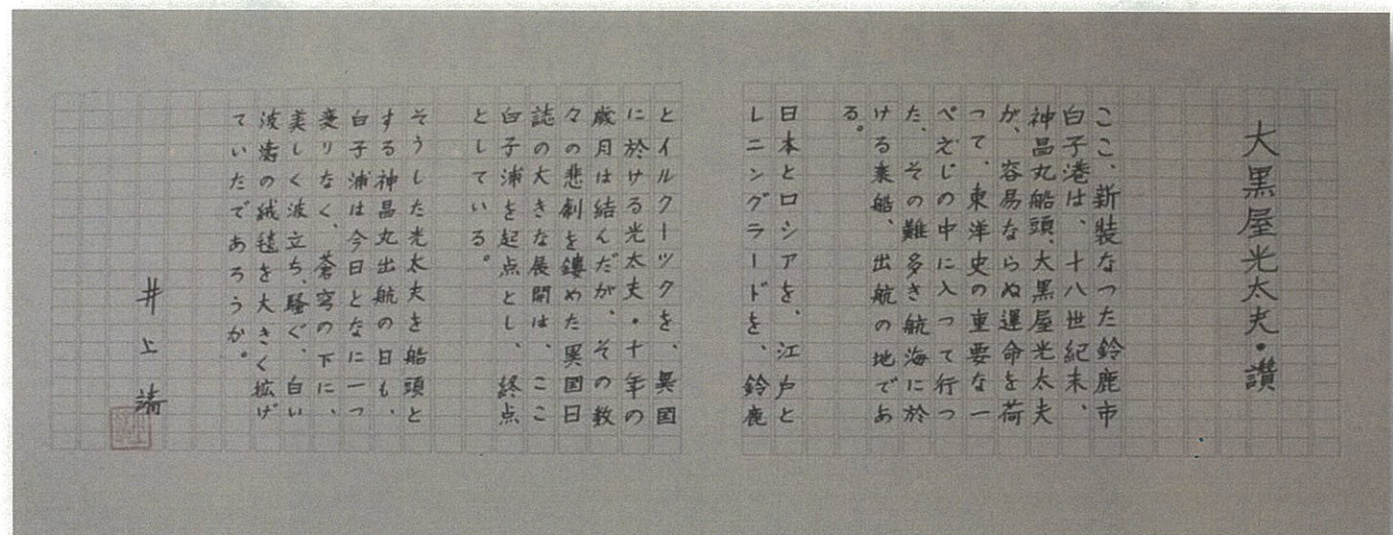 大黒屋光太夫・讃
ここ、新装なった鈴鹿市
白子港は、十八世紀末、
神昌丸船頭、大黒屋光太夫
が、容易ならぬ運命を荷
って、東洋史の重要な一
ぺえじの中に入って行っ
た、その難多き航海に於
ける乗船、出航の地であ
る。
日本とロシアを、江戸と
レニングラードを、鈴鹿
とイルクーツクを、異国
に於ける光太夫・十年の
歳月は結んだが、その数
々の悲劇を鏤めた異国日
誌の大きな展開は、ここ
白子浦を起点とし、終点
としている。
そうした光太夫を船頭と
する神昌丸出航の日も、
白子浦は今日となに一つ
変りなく、蒼穹の下に、
美しく波立ち、騒ぐ、白い
波濤の絨毯を大きく拡げ
ていたであろうか。
井上靖